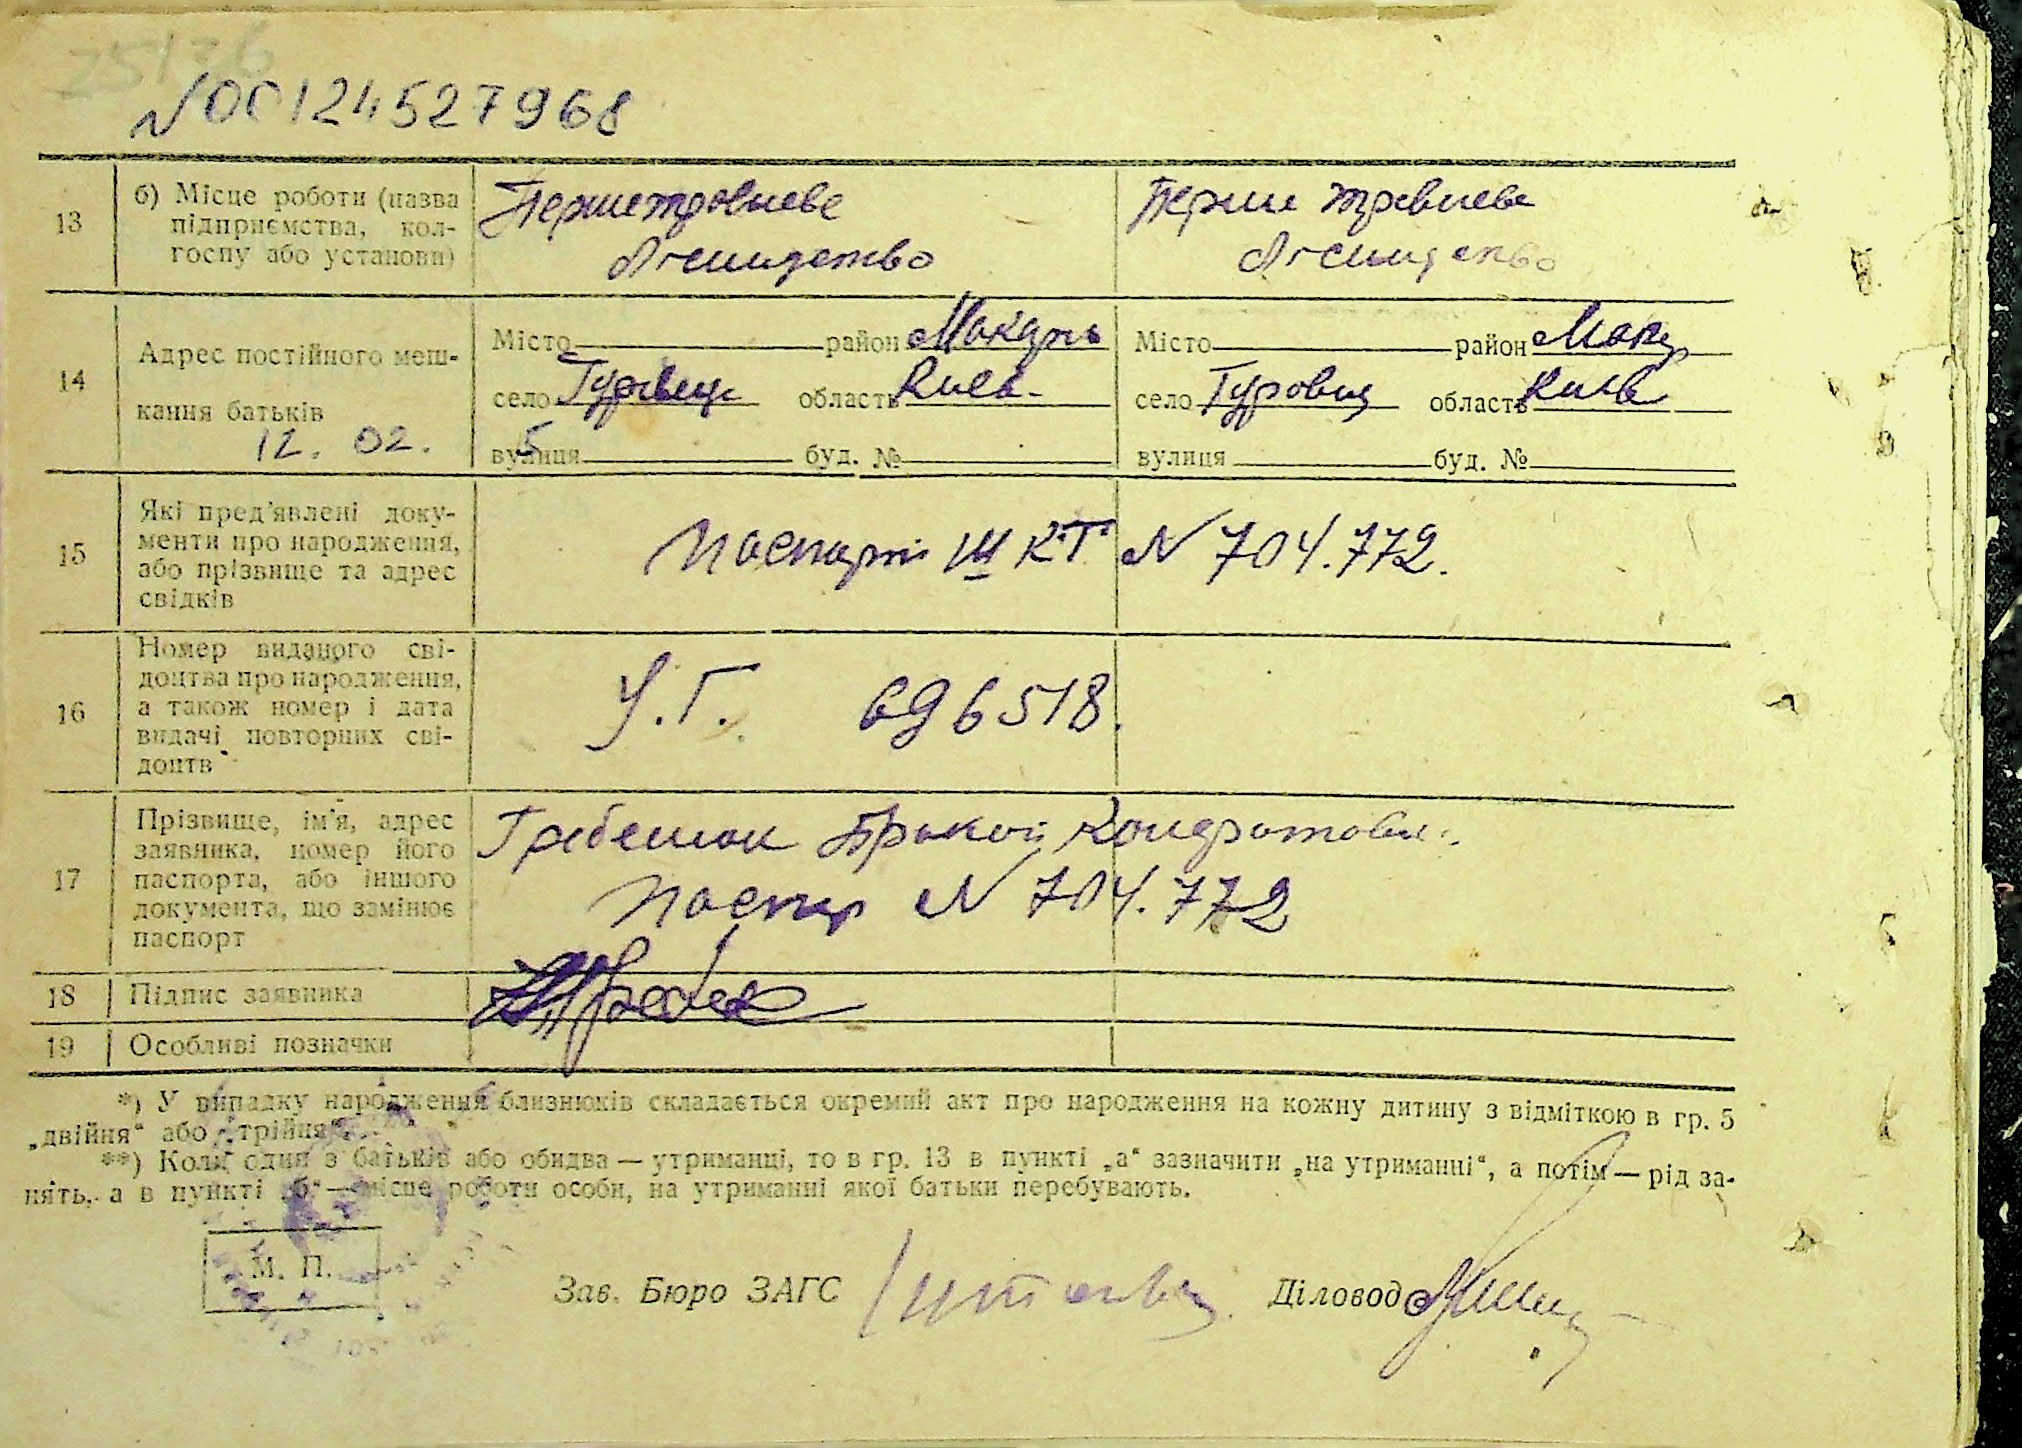 75176
№ОС124527968
13
б) Місце роботи (назва підприємства, кол-
госпу або установи)
Першетровневе
Лісництво
Перше тровневе
Лісництво
14
Адрес постійного меш-
кання батьків
12. 02.
5
Місто район Макарів
село Гурівщ область Киев.
вулиця буд. №
Місто район Мока
село Гуровщ область Київ
вулиця буд. №
15
Які пред'явлені доку-
менти про народження,
або прізвище та адрес
свідків
Паспорт III КТ N 704.772.
16
Номер виданого сві-
доцтва про народження,
а також номер і дата
видачі повторних сві-
доцтв
У.Г. 696518.
17
Прізвище, ім'я, адрес
заявника, номер його
паспорта, або іншого
документа, що замінює
паспорт
Гребенюк Кондратови
Паспор N 704.772
18
Підпис заявника
19
Особливі позначки
*) У випадку народження близнюків складається окремий акт про народження на кожну дитину з відміткою в гр. 5
„двійня" або „трійня".
**) Коли один з батьків або обидва — утриманці, то в гр. 13 в пункті „а" зазначити „на утриманні", а потім — рід за-
нять, а в пункті „б" — місце роботи особи, на утриманні якої батьки перебувають.
М. П.
Зав. Бюро ЗАГС
Діловод